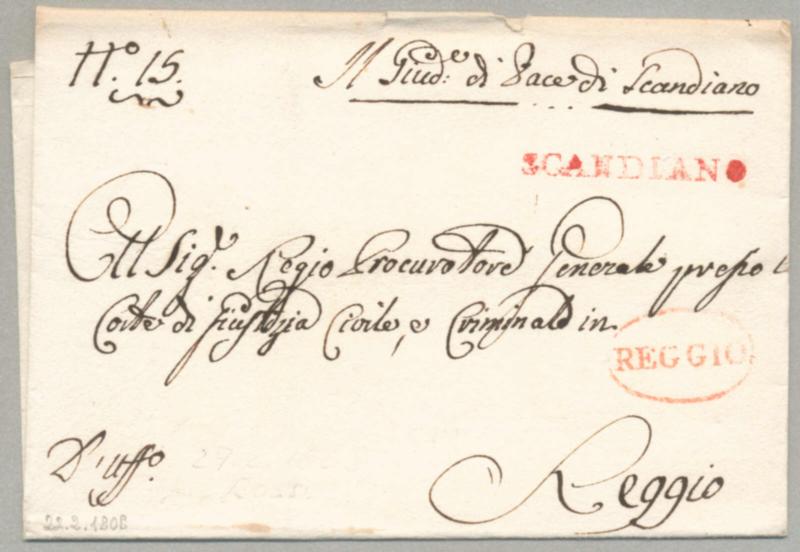 N.º 15.
Il Giud.e di Pace di Scandiano
SCANDIANO
Al Sig.r Regio Procuratore Generale presso
Corte di Giustizia Civile, e Criminale in
REGGIO
D'Uff.o
Reggio
22.2.1808